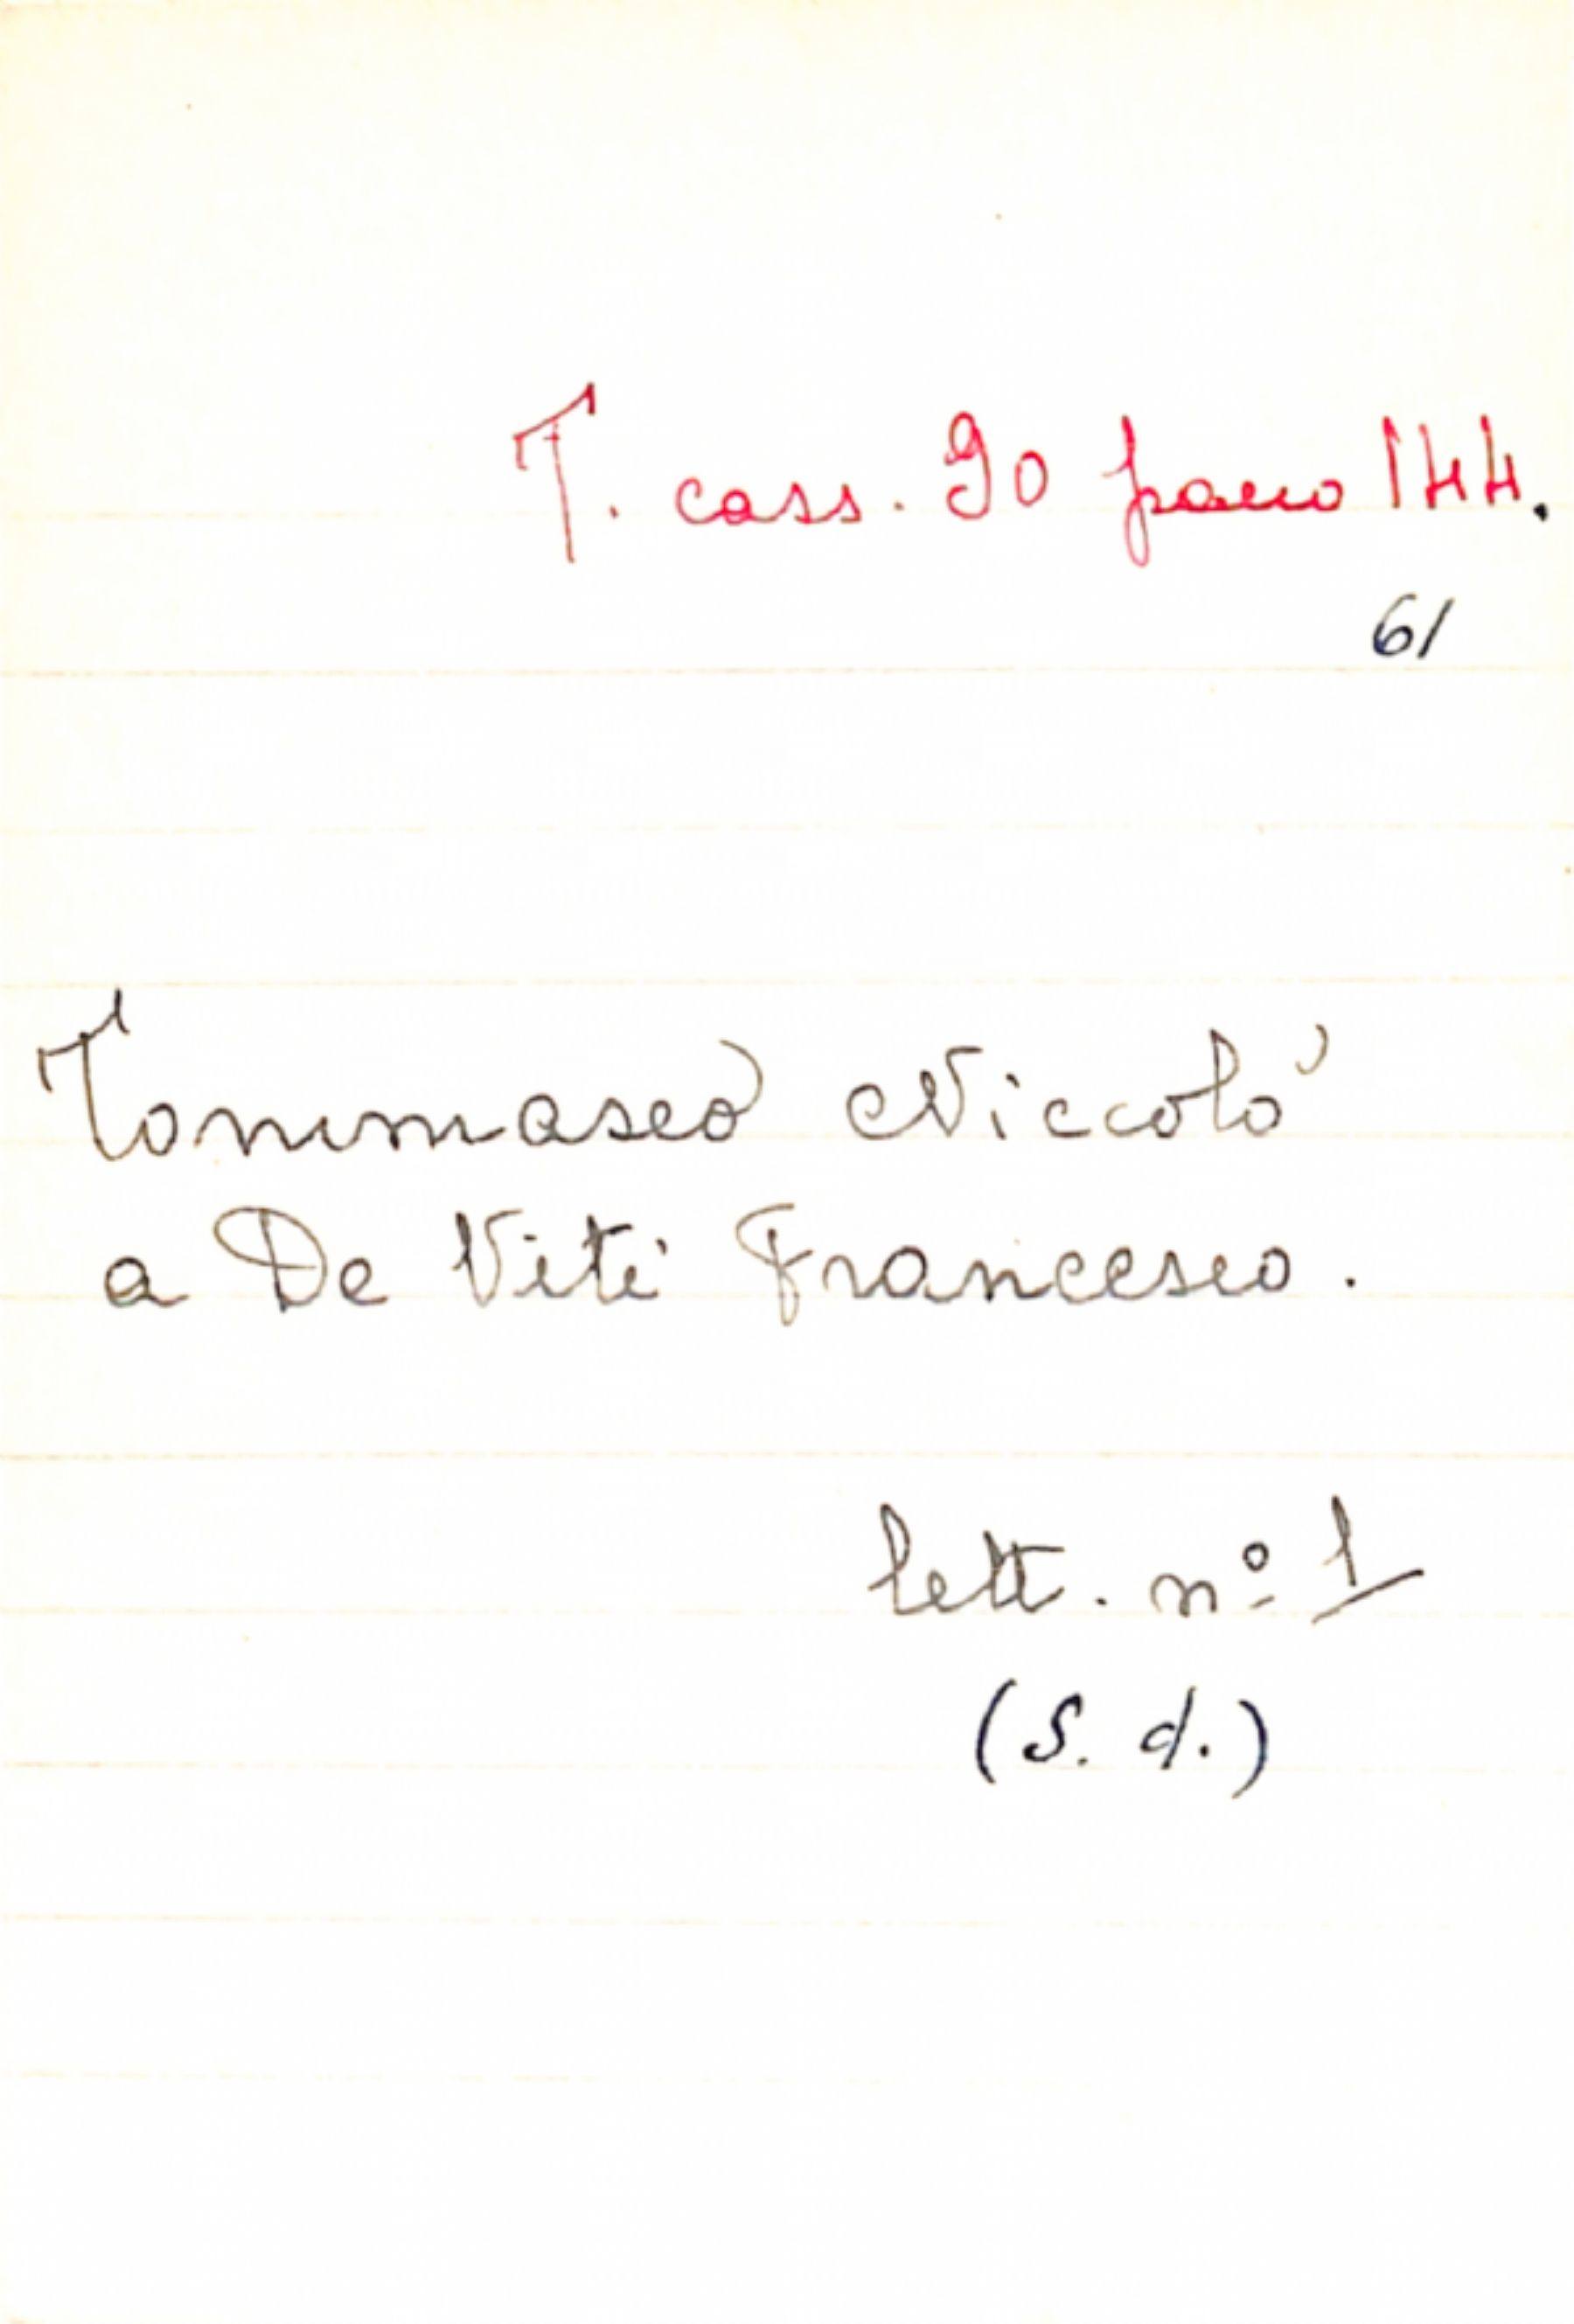 T. cass. 90 pacco 144.
61
Tommaseo Niccolò
a De Viti Francesco.
lett. nº 1
(S. d.)